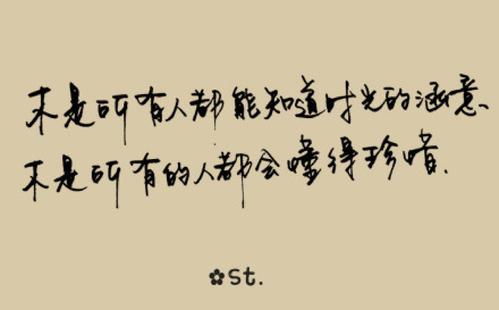 不是所有人都能知道时光的涵意、
不是所有的人都会懂得珍惜.
✿st.